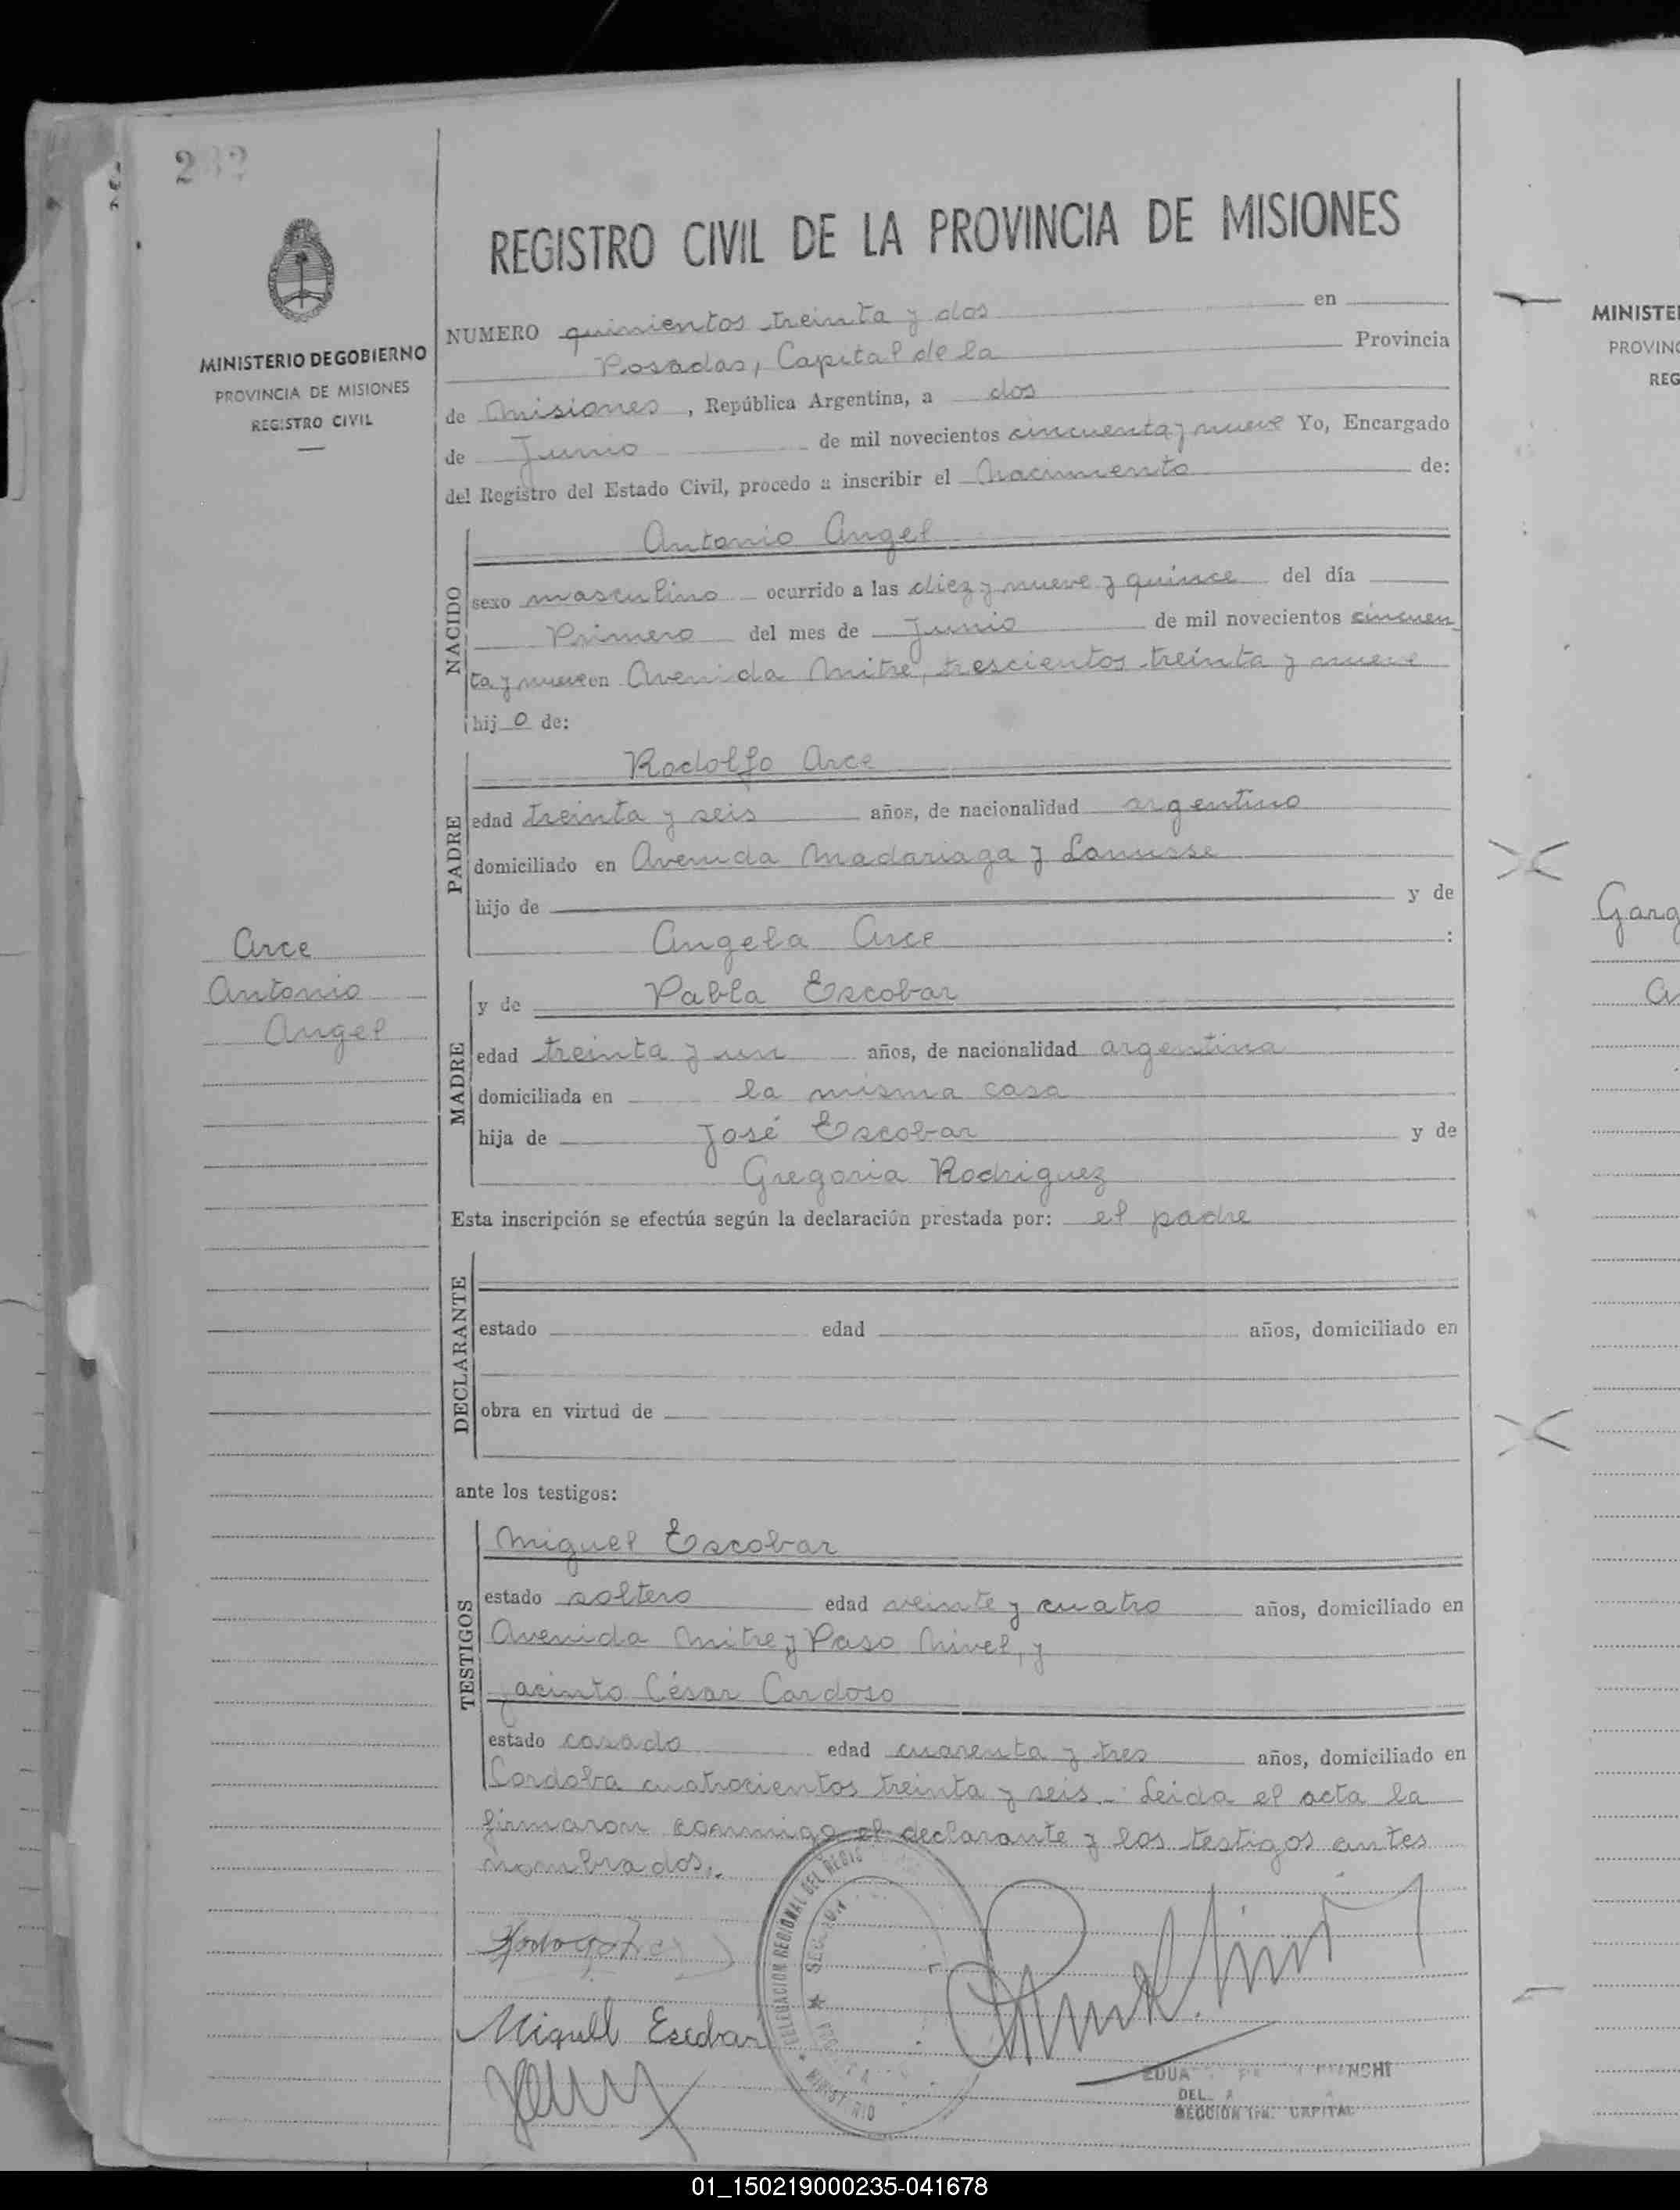 REGISTRO CIVIL DE LA PROVINCIA DE MISIONES
MINISTERIO DE GOBIERNO
PROVINCIA DE MISIONES
REGISTRO CIVIL
NUMERO quinientos treinta y dos en
Posadas, Capital de la Provincia
de Misiones, República Argentina, a dos
de Junio de mil novecientos cincuenta y nueve Yo, Encargado
del Registro del Estado Civil, procedo a inscribir el Nacimiento de:
NACIDO
Antonio Angel
sexo masculino ocurrido a las diez y nueve y quince del día
Primero del mes de Junio de mil novecientos cincuen
ta y nueve en Avenida Mitre, trescientos treinta y nueve
hijo de:
PADRE
Rodolfo Arce
edad treinta y seis años, de nacionalidad argentino
domiciliado en Avenida Madariaga y Lanusse
hijo de y de
Angela Arce :
Arce
Antonio
Angel
MADRE
y de Pabla Escobar
edad treinta y un años, de nacionalidad argentina
domiciliada en la misma casa
hija de José Escobar y de
Gregoria Rodriguez
Esta inscripción se efectúa según la declaración prestada por: el padre
DECLARANTE
estado edad años, domiciliado en
obra en virtud de
ante los testigos:
TESTIGOS
Miguel Escobar
estado soltero edad veinte y cuatro años, domiciliado en
Avenida Mitre y Paso Nivel, y
Jacinto César Cardoso
estado casado edad cuarenta y tres años, domiciliado en
Cordoba cuatrocientos treinta y seis.- Leida el acta la
firmaron conmigo el declarante y los testigos antes
nombrados.
Miguel Escobar
DELEGACION REGIONAL DEL REGIS
MINISTERIO
SECCION 1RA. CAPITAL
MINISTE
PROVINC
REG
Garg
01_150219000235-041678